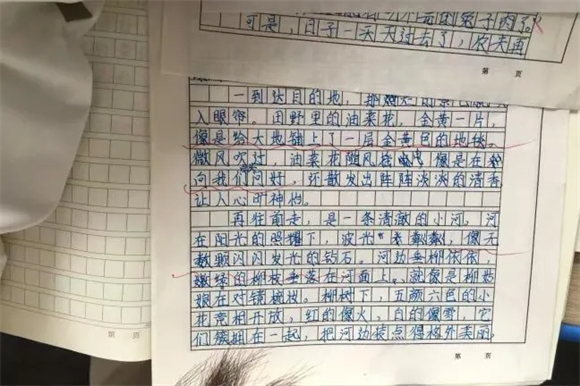 可是，日子一天天过去了，农夫再
第 页
一到达目的地，
入眼帘。田野里的油菜花，金黄一片，
像是给大地铺上了一层金黄色的地毯。
微风吹过，油菜花随风摇 像是在
向我们问好，还散发出阵阵淡淡的清香
让人心旷神怡。
再往前走，是一条清澈的小河，河
在阳光的照耀下，波光 像无
数颗闪闪发光的钻石。河边垂柳依依，
嫩绿的柳枝垂落在河面上，就像是柳姑
娘在对镜梳妆。柳树下，五颜六色的小
花竞相开放，红的像火，白的像雪，它
们簇拥在一起，把河边装点得格外美丽。
第 页
第 页